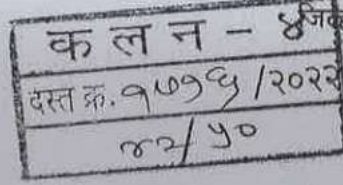 क ल न - ४
दस्त क्र. १७१६ /२०२२
४२/५०